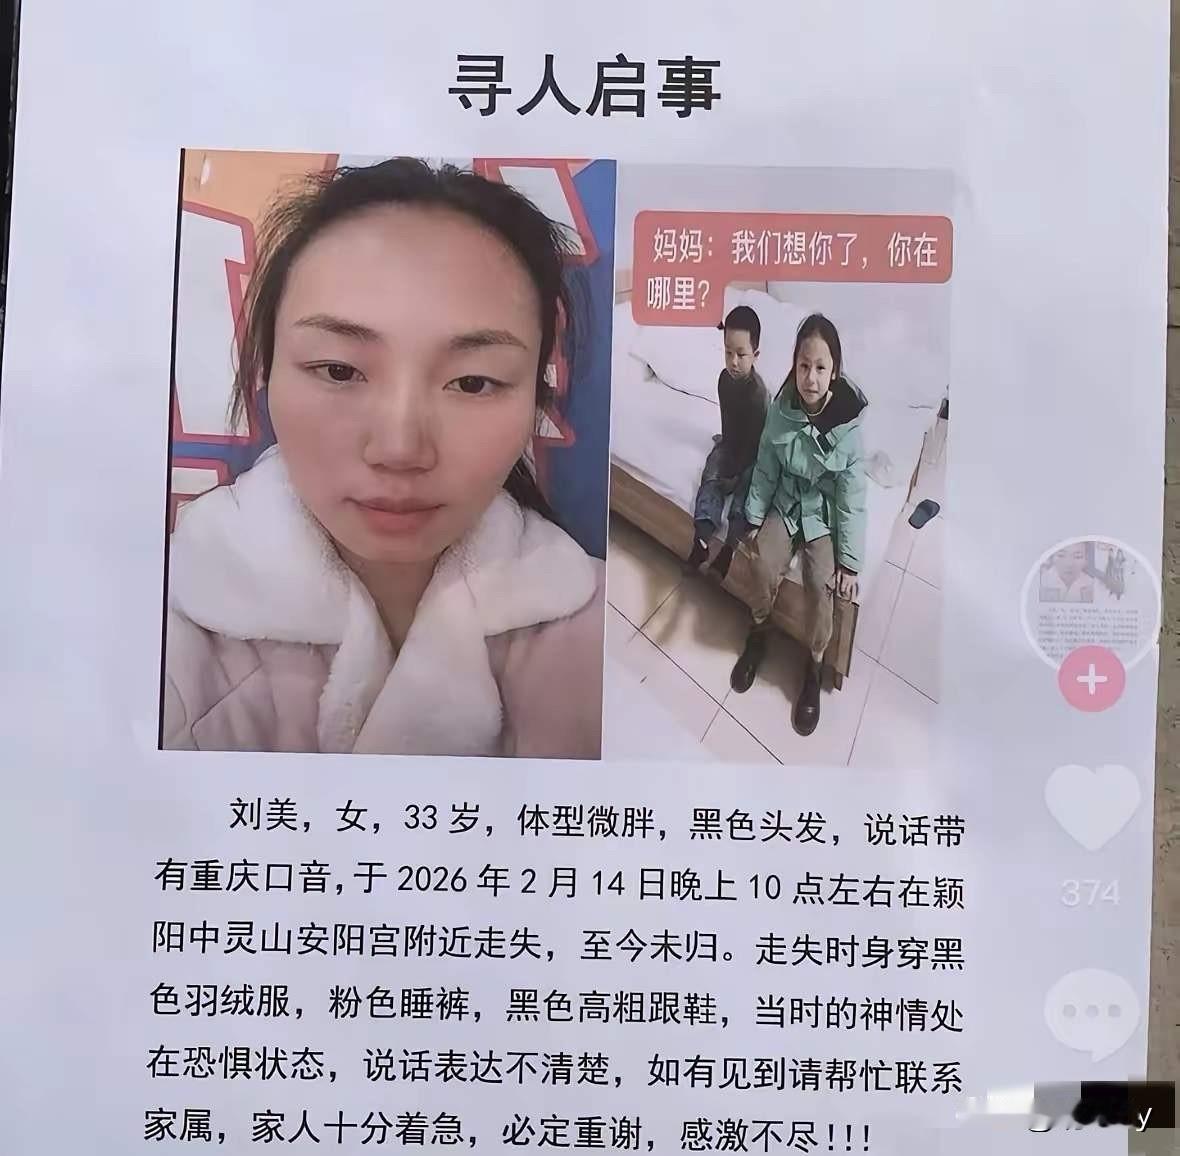 寻人启事
妈妈：我们想你了，你在
哪里？
刘美，女，33岁，体型微胖，黑色头发，说话带
有重庆口音,于2026年2月14日晚上10点左右在颍
阳中灵山安阳宫附近走失，至今未归。走失时身穿黑
色羽绒服，粉色睡裤，黑色高粗跟鞋，当时的神情处
在恐惧状态，说话表达不清楚，如有见到请帮忙联系
家属，家人十分着急，必定重谢，感激不尽!!!
374